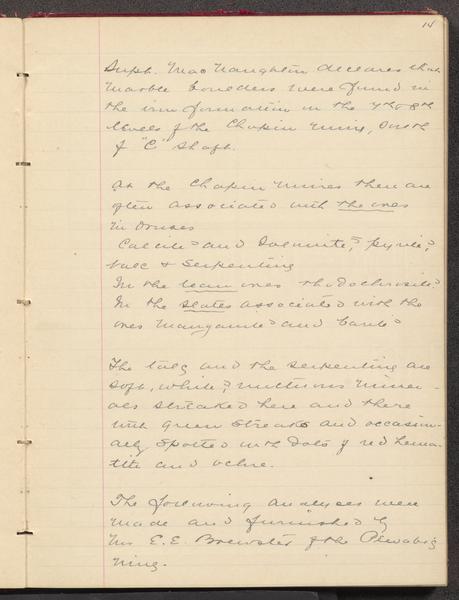 14
Supt. MacNaughton declares that
marble boulders were found in
the iron formation in the 7th & 8th
levels of the Chapin Mine, South
of "C" Shaft.
At the Chapin Mines there are
often associated with the ores
in Druses
Calcite and Dolomite, pyrite,
talc & Serpentine
In the lean ores rhodochrosite
In the slates associated with the
ores Manganite and barite
The talc and the serpentine are
soft, white, unctuous miner-
als streaked here and there
with green streaks and occasion-
ally spotted with dots of red hema-
tite and ochre.
The following analyses were
made and furnished by
Mr E. E. Brewster of the Pewabic
Mine.